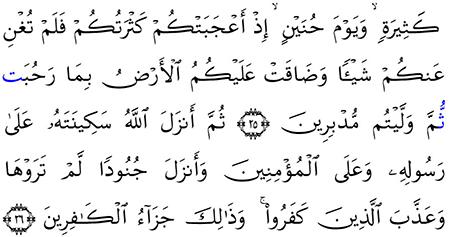 كَثِيرَةٍ ۙ وَيَوْمَ حُنَيْنٍ ۙ إِذْ أَعْجَبَتْكُمْ كَثْرَتُكُمْ فَلَمْ تُغْنِ
عَنكُمْ شَيْـًٔا وَضَاقَتْ عَلَيْكُمُ ٱلْأَرْضُ بِمَا رَحُبَت
ثُّمَّ وَلَّيْتُم مُّدْبِرِينَ ﴿٢٥﴾ ثُمَّ أَنزَلَ ٱللَّهُ سَكِينَتَهُۥ عَلَىٰ
رَسُولِهِۦ وَعَلَى ٱلْمُؤْمِنِينَ وَأَنزَلَ جُنُودًا لَّمْ تَرَوْهَا
وَعَذَّبَ ٱلَّذِينَ كَفَرُوا۟ ۚ وَذَٰلِكَ جَزَآءُ ٱلْكَـٰفِرِينَ ﴿٢٦﴾